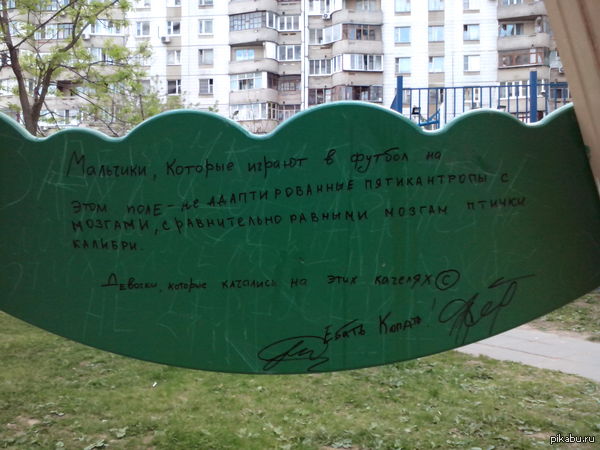 Мальчики, которые играют в футбол на
этом поле - не адаптированные пятикантропы с
мозгами, сравнительно равными мозгам птички
калибри.
Девочки, которые качались на этих качелях ©
Ебать
pikabu.ru